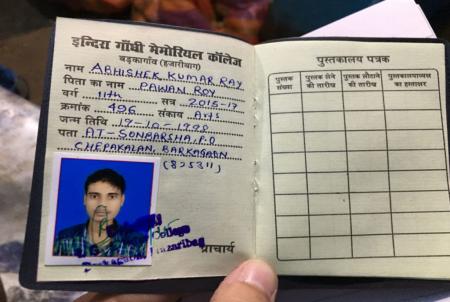 इन्दिरा गाँधी मेमोरियल कॉलेज
बड़कागाँव (हजारीबाग)
नाम ABHISHEK KUMAR RAY
पिता का नाम PAWAN ROY
वर्ग 11th सत्र 2015-17
क्रमांक 496 संकाय Arts
जन्म तिथि 17-10-1998
पता AT-SONBARSHA, P.O
CHEPAKALAN, BARKAGAON
(825311)
College
Hazaribag
प्राचार्य
पुस्तकालय पत्रक
पुस्तक संख्या
पुस्तक लेने की तारीख
पुस्तक लौटाने की तारीख
पुस्तकालयाध्यक्ष का हस्ताक्षर